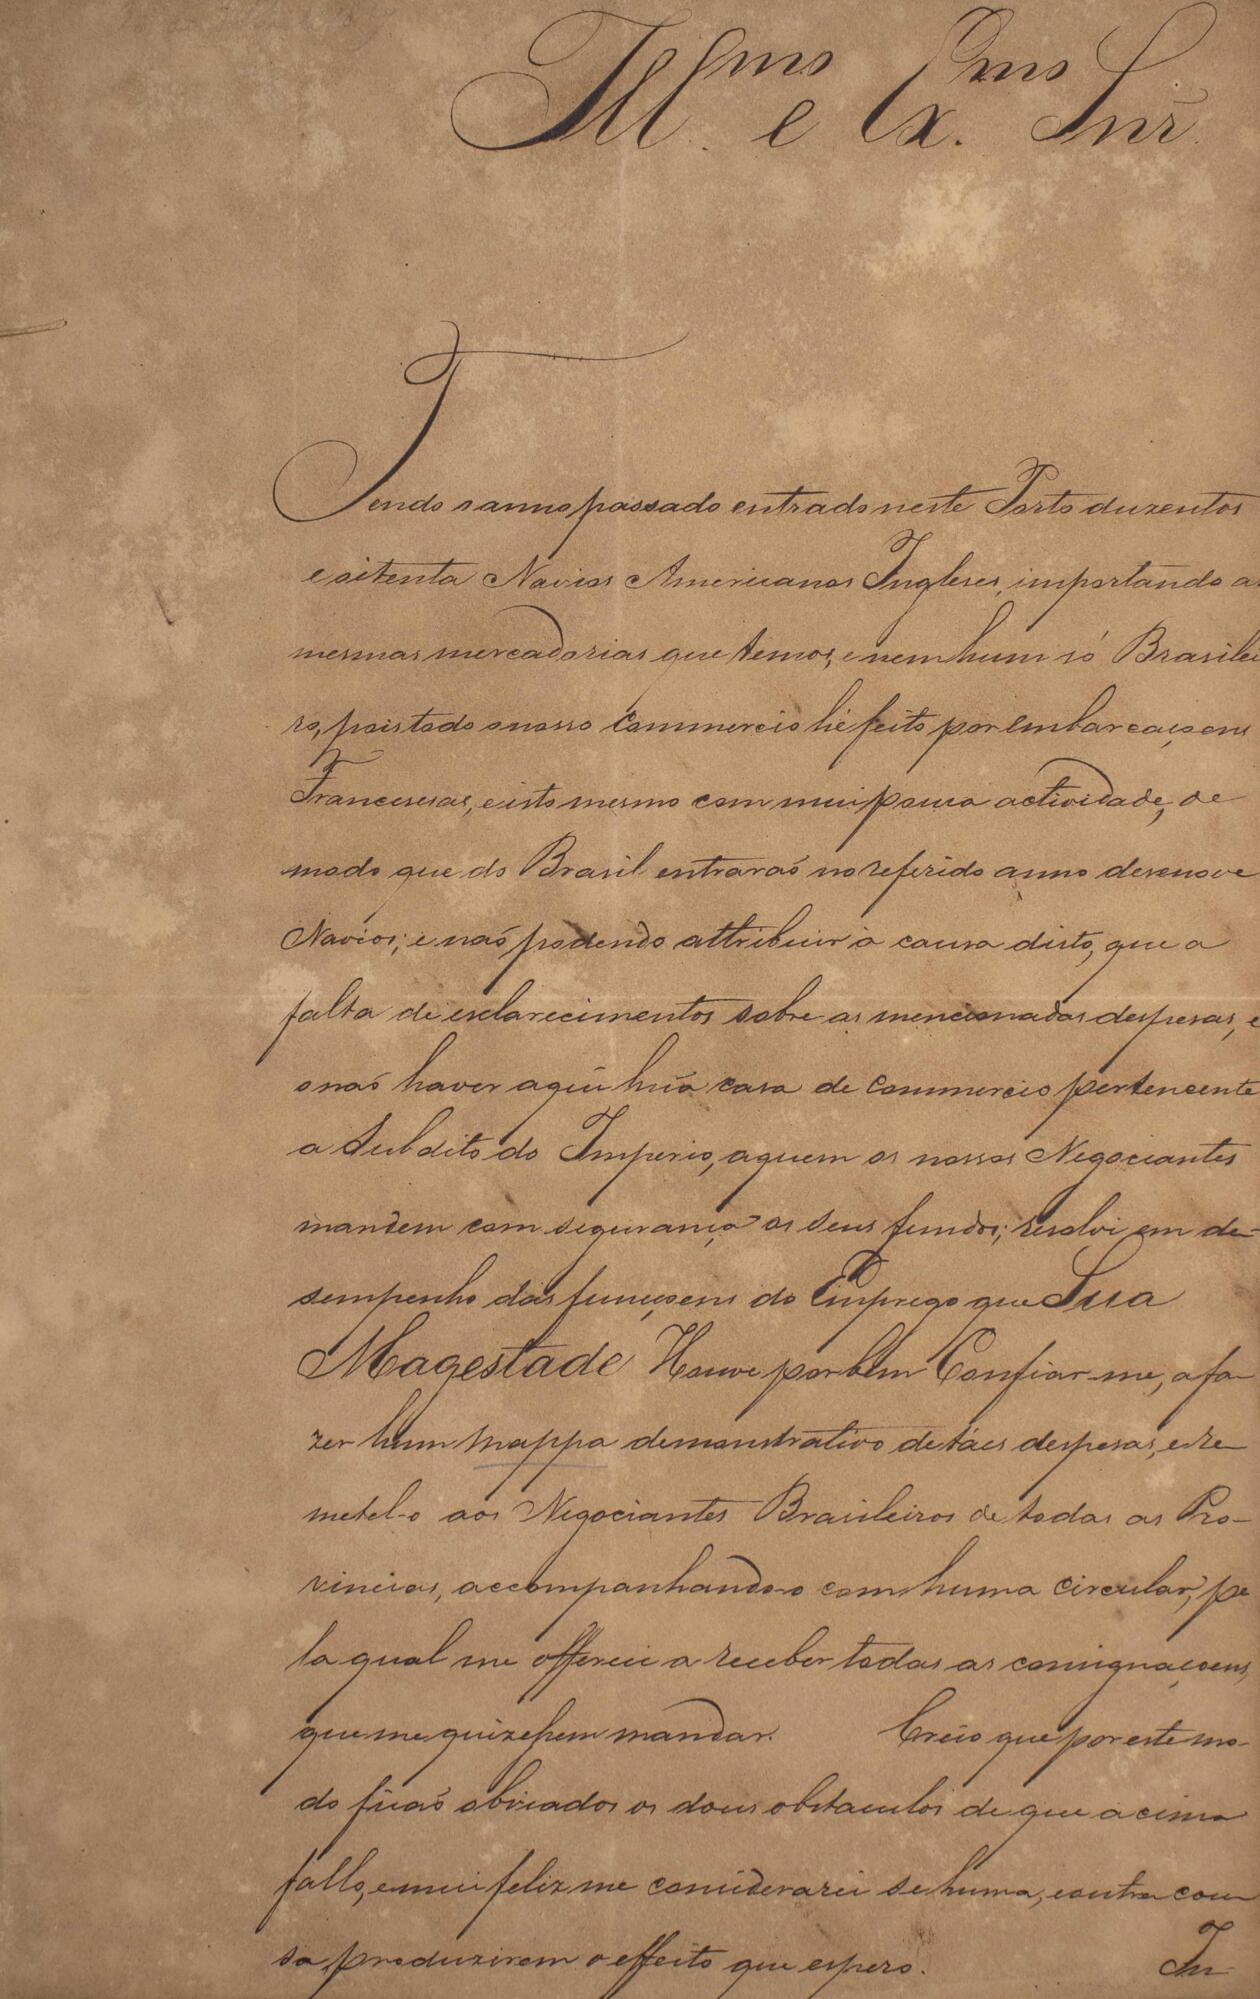 Ill.mo e Ex.mo Snr̃.
Tendo o anno passado entrado neste Porto duzentos
e oitenta Navios Americanos Ingleses, importando as
mesmas mercadorias que temos, e nem hum só Brasilei
ro, pois todo o nosso Commercio hé feito por embarcaçoens
Francesas, e isto mesmo com mui pouca actividade, de
modo que do Brasil entraraó no referido anno desenove
Navios; e naó podendo attribuir a causa disto, que a
falta de esclarecimentos sobre as mencionadas despesas, e
o naó haver aqui hũa casa de Commercio pertencente
a Subdito do Imperio, a quem os nossos Negociantes
mandem com segurança os seus fundos; resolvi em de-
sempenho das funçoens do Emprego que Sua
Magestade Houve por bem Confiar-me, a fa-
zer hum mappa demonstrativo de táes despesas, e re-
metel-o aos Negociantes Brasileiros de todas as Pro-
vincias, accompanhando-o com huma circular, pe
la qual me offereci a receber todas as consignaçoens,
que me quizessem mandar. Creio que por este mo-
do ficaó obviados os dous obstaculos de que acima
fallo, e mui feliz me considerarei se huma, e outra cou
sa, produzirem o effeito que espero.